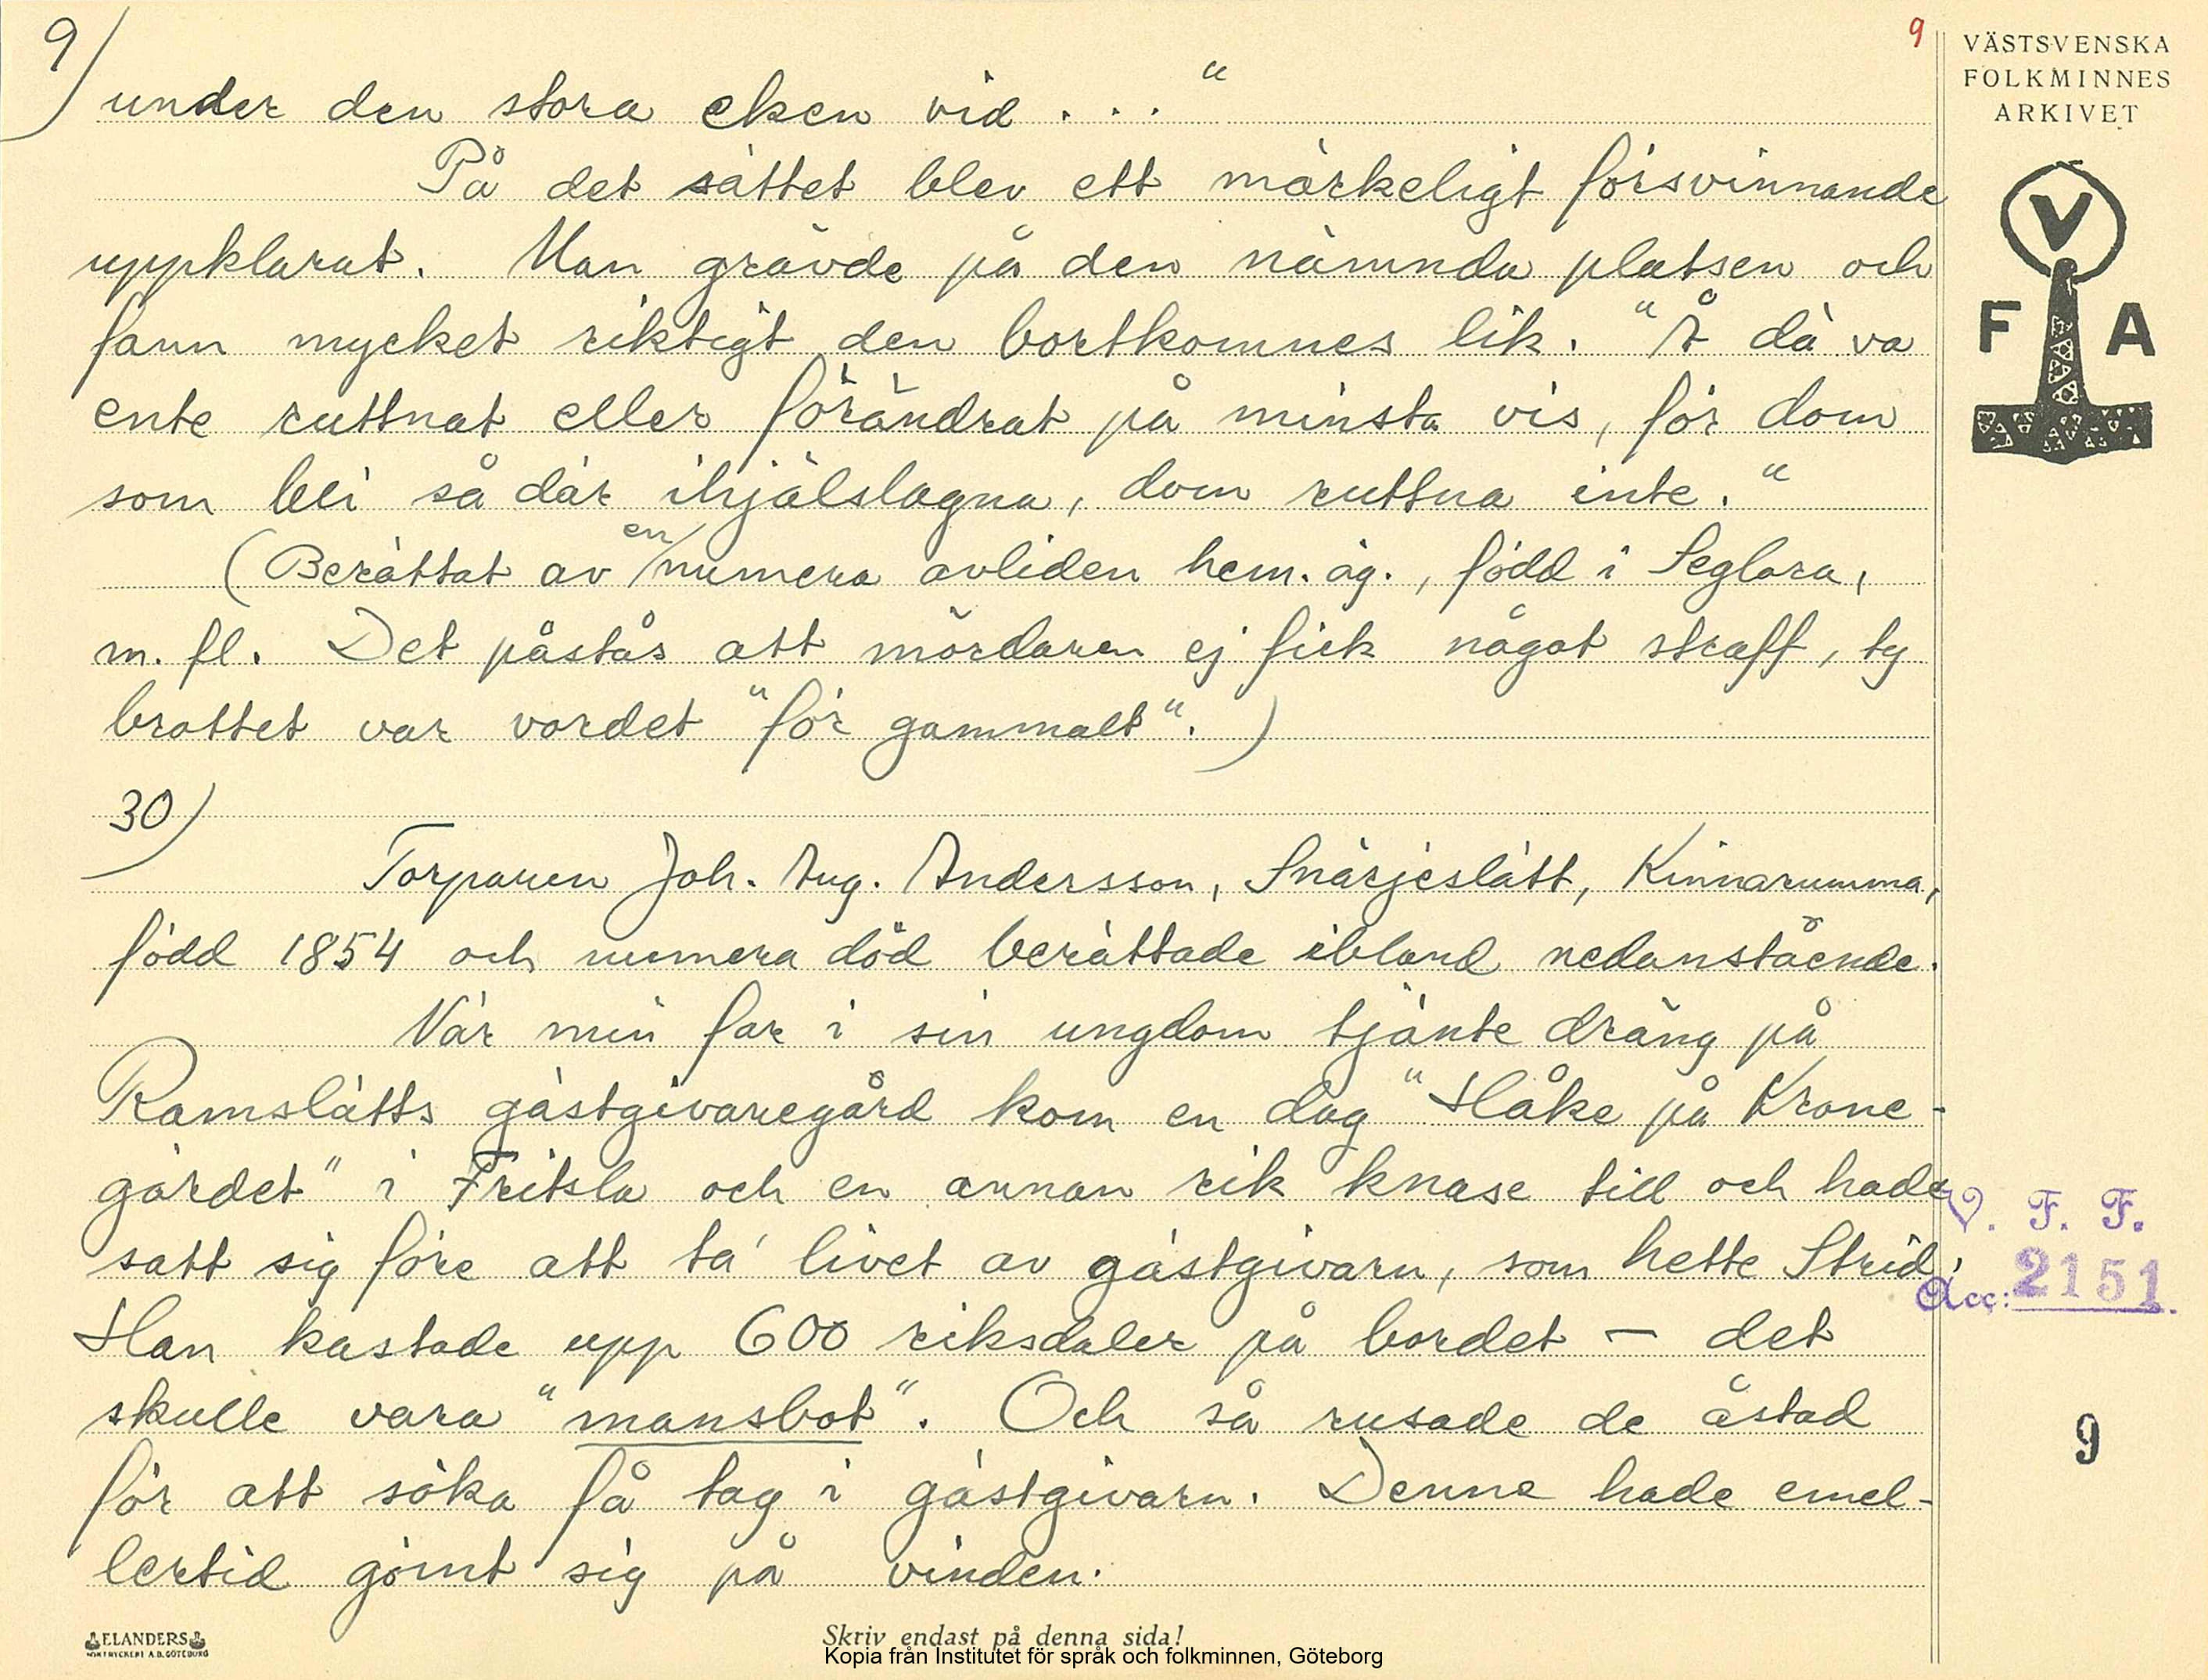 9)
9
VÄSTSVENSKA
FOLKMINNES
ARKIVET
V
F A
under den stora eken vid . . . "
På det sättet blev ett märkeligt försvinnande
uppklarat. Man grävde på den nämnda platsen och
fann mycket riktigt den bortkomnes lik. "Å dä va
ente ruttnat eller förändrat på minsta vis, för dom
som bli så där ihjälslagna, dom ruttna inte."
(Berättat av en numera avliden hem. äg., född i Seglora,
m. fl. Det påstås att mördaren ej fick något straff, ty
brottet var vordet "för gammalt".)
30)
Torparen Joh. Aug. Andersson, Snärjeslätt, Kinnarumma,
född 1854 och numera död berättade ibland nedanstående.
När min far i sin ungdom tjänte dräng på
Ramslätts gästgivaregård kom en dag "Håke på Krone-
gärdet" i Fritsla och en annan rik knase till och hade
satt sig före att ta' livet av gästgivarn, som hette Strid.
Han kastade upp 600 riksdaler på bordet — det
skulle vara "mansbot". Och så rusade de åstad
för att söka få tag i gästgivarn. Denne hade emel-
lertid gömt sig på vinden.
V. F. F.
Acc: 2151.
9
ELANDERS
BOKTRYCKERI A.B. GÖTEBORG
Skriv endast på denna sida!
Kopia från Institutet för språk och folkminnen, Göteborg